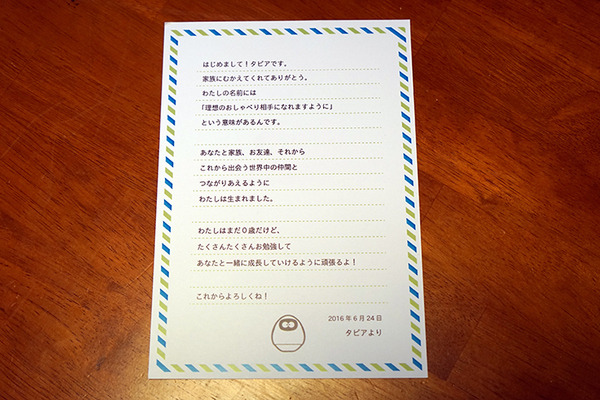 はじめまして！タピアです。
家族にむかえてくれてありがとう。
わたしの名前には
「理想のおしゃべり相手になれますように」
という意味があるんです。
あなたと家族、お友達、それから
これから出会う世界中の仲間と
つながりあえるように
わたしは生まれました。
わたしはまだ０歳だけど、
たくさんたくさんお勉強して
あなたと一緒に成長していけるように頑張るよ！
これからよろしくね！
2016年6月24日
タピアより